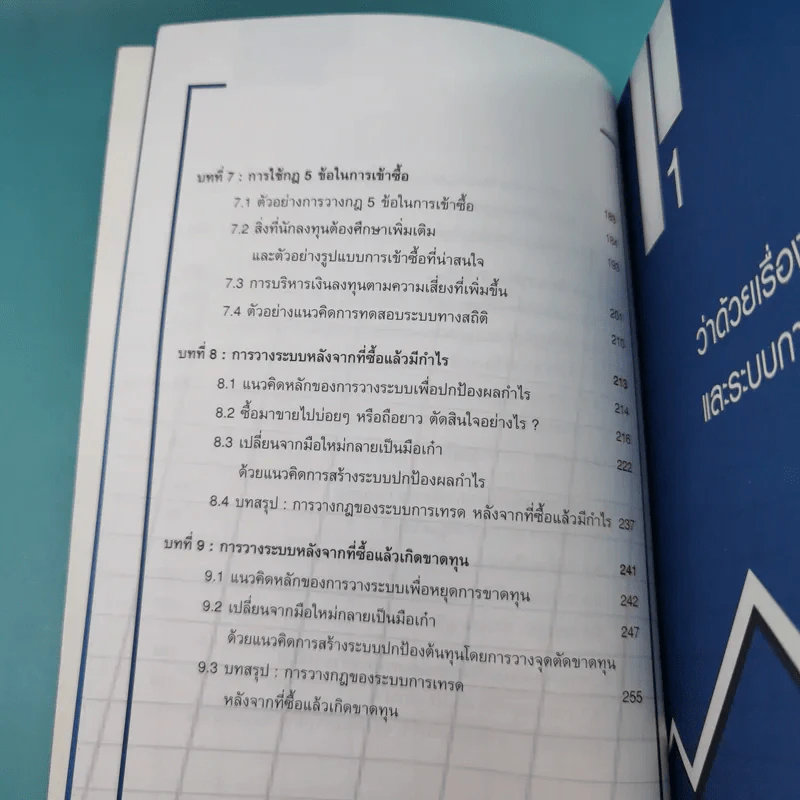 บทที่ 7 : การใช้กฎ 5 ข้อในการเข้าซื้อ
7.1 ตัวอย่างการวางกฎ 5 ข้อในการเข้าซื้อ
7.2 สิ่งที่นักลงทุนต้องศึกษาเพิ่มเติม
และตัวอย่างรูปแบบการเข้าซื้อที่น่าสนใจ 193
7.3 การบริหารเงินลงทุนตามความเสี่ยงที่เพิ่มขึ้น 201
7.4 ตัวอย่างแนวคิดการทดสอบระบบทางสถิติ 210
บทที่ 8 : การวางระบบหลังจากที่ซื้อแล้วมีกำไร 213
8.1 แนวคิดหลักของการวางระบบเพื่อปกป้องผลกำไร 214
8.2 ซื้อมาขายไปบ่อยๆ หรือถือยาว ตัดสินใจอย่างไร ? 216
8.3 เปลี่ยนจากมือใหม่กลายเป็นมือเก๋า 222
ด้วยแนวคิดการสร้างระบบปกป้องผลกำไร
8.4 บทสรุป : การวางกฎของระบบการเทรด หลังจากที่ซื้อแล้วมีกำไร 237
บทที่ 9 : การวางระบบหลังจากที่ซื้อแล้วเกิดขาดทุน 241
9.1 แนวคิดหลักของการวางระบบเพื่อหยุดการขาดทุน 242
9.2 เปลี่ยนจากมือใหม่กลายเป็นมือเก๋า 247
ด้วยแนวคิดการสร้างระบบปกป้องต้นทุนโดยการวางจุดตัดขาดทุน
9.3 บทสรุป : การวางกฎของระบบการเทรด 255
หลังจากที่ซื้อแล้วเกิดขาดทุน
1
ว่าด้วยเรื่อง
และระบบกา